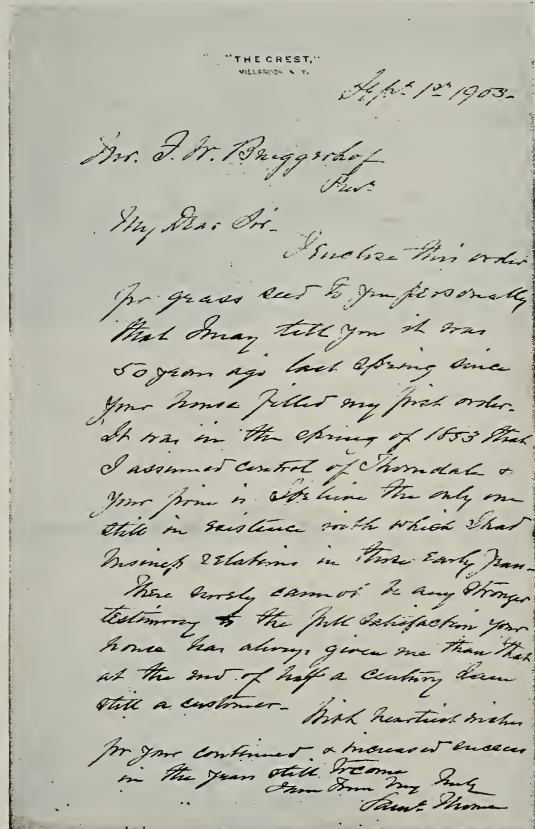 "THE CREST,"
MILLBROOK N. Y.
Sept. 1st 1903-
Mr. F. W. Bruggerhof
Prest
My Dear Sir-
I enclose this order
for grass seed to you personally
that I may tell you it was
50 years ago last Spring since
your house filled my first order.
It was in the Spring of 1853 that
I assumed control of Thorndale &
your firm is I believe the only one
still in existence with which I had
business relations in those early years-
There surely cannot be any stronger
testimony to the full satisfaction your
house has always given me than that
at the end of half a century I am
still a customer- With heartiest wishes
for your continued & increased success
in the years still to come
I am Yours Very Truly
Saml. Thorne